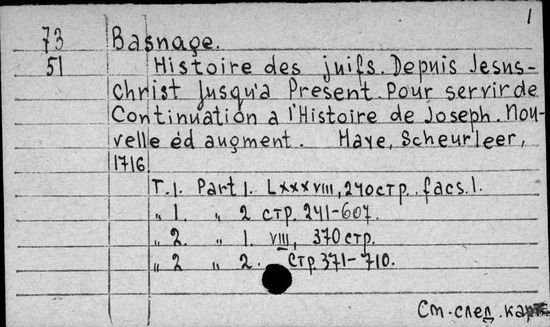 1
73 Basnage.
51 Histoire des juifs. Depuis Jesus-
christ Jusqu'a Present. Pour servir de
Continuation a l'Histoire de Joseph. Nou-
velle éd augment. Haye, Scheurleer,
1716
T. 1. Part 1. LXXXVIII, 240 стр. facs. 1.
" 1. " 2 стр. 241-607.
" 2. " 1. VIII, 370 стр.
" 2 " 2. стр. 371-710.
См. след. карт